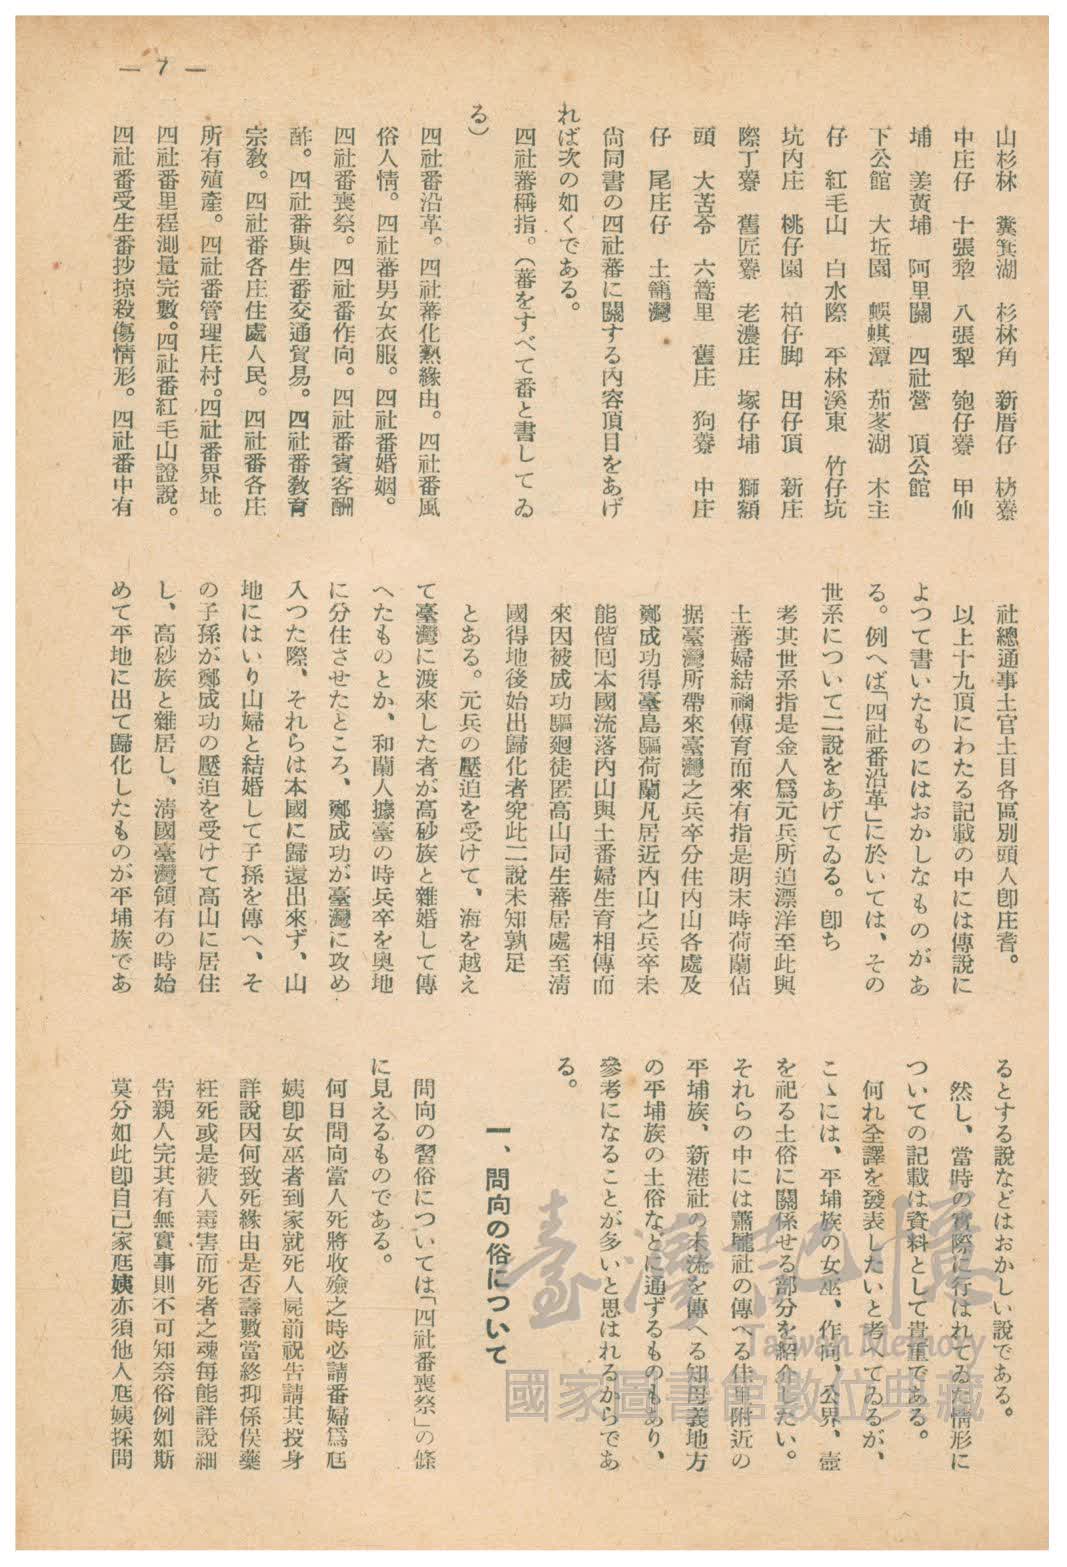 — 7 —
山杉林　糞箕湖　杉林角　新厝仔　枋藔
中庄仔　十張犂　八張犁　匏仔藔　甲仙
埔　姜黃埔　阿里關　四社營　頂公館
下公館　大坵園　蜈蜞潭　茄苳湖　木主
仔　紅毛山　白水際　平林溪東　竹仔坑
坑內庄　桃仔園　柏仔脚　田仔頂　新庄
際丁藔　舊匠藔　老濃庄　塚仔埔　獅額
頭　大苦苓　六蒿里　舊庄　狗藔　中庄
仔　尾庄仔　土籠灣
尙同書の四社蕃に關する內容項目をあげ
れば次の如くである。
四社蕃稱指。（蕃をすべて番と書してゐ
る）
四社番沿革。四社蕃化熟緣由。四社番風
俗人情。四社蕃男女衣服。四社番婚姻。
四社番喪祭。四社番作向。四社番賓客酬
酢。四社番與生番交通貿易。四社番敎育
宗敎。四社番各庄住處人民。四社番各庄
所有殖產。四社番管理庄村。四社番界址。
四社番里程測量完數。四社番紅毛山證說。
四社番受生番抄掠殺傷情形。四社番中有
社總通事土官土目各區別頭人卽庄耆。
以上十九頂にわたる記載の中には傳說に
よつて書いたものにはおかしなものがあ
る。例へば「四社番沿革」に於いては、その
世系について二說をあげてゐる。卽ち
考其世系指是金人爲元兵所迫漂洋至此與
土蕃婦結禍傳育而來有指是明末時荷蘭佔
据臺灣所帶來臺灣之兵卒分住內山各處及
鄭成功得臺島驅荷蘭凡居近內山之兵卒未
能偕囘本國流落內山與土番婦生育相傳而
來因被成功驅廻徒匿高山同生蕃居處至淸
國得地後始出歸化者究此二說未知孰足
とある。元兵の壓迫を受けて、海を越え
て臺灣に渡來した者が高砂族と雜婚して傳
へたものとか、和蘭人據臺の時兵卒を奧地
に分住させたところ、鄭成功が臺灣に攻め
入つた際、それらは本國に歸還出來ず、山
地にはいり山婦と結婚して子孫を傳へ、そ
の子孫が鄭成功の壓迫を受けて高山に居住
し、高砂族と雜居し、淸國臺灣領有の時始
めて平地に出て歸化したものが平埔族であ
るとする說などはおかしい說である。
然し、當時の實際に行はれてゐた情形に
ついての記載は資料として貴重である。
何れ全譯を發表したいと考へてゐるが、
こゝには、平埔族の女巫、作向、公界、壺
を祀る土俗に關係せる部分を紹介したい。
それらの中には蕭壠社の傳へる佳里附近の
平埔族、新港社の末流を傳へる知母義地方
の平埔族の土俗などに通ずるものもあり、
參考になることが多いと思はれるからであ
る。
一、問向の俗について
問向の習俗については「四社番喪祭」の條
に見えるものである。
何日問向當人死將收殮之時必請番婦爲尫
姨卽女巫者到家就死人屍前祝告請其投身
詳說因何致死緣由是否壽數當終抑係俣藥
枉死或是被人毒害而死者之魂每能詳說細
告親人完其有無實事則不可知奈俗例如斯
莫分如此卽自己家尫姨亦須他人尫姨採問
臺灣記憶
Taiwan Memory
國家圖書館數位典藏